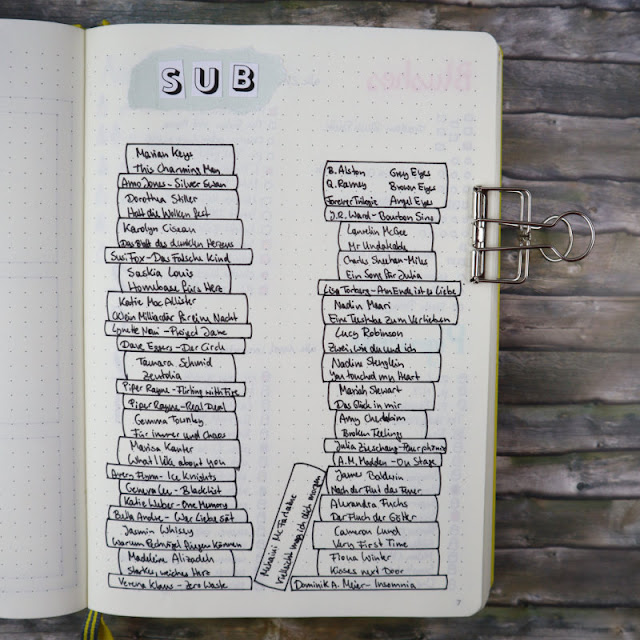 SUB
Marian Keys
This Charming Man
Anna Jones - Silver Swan
Dorothea Stiller
Halt die Wolken fest
Karolyn Ciseau
Das Blatt des dunklen Herzens
Susi Fox - Das falsche Kind
Saskia Louis
Homebase fürs Herz
Katie MacAlister
(K)ein Milliardär für eine Nacht
Lynette Noni - Project Jane
Dave Eggers - Der Circle
Tamara Schmid
Piper Rayne - Flirting with Fire
Piper Rayne - Real Deal
Gemma Townley
Für immer und Chaos
Marisa Kanter
What I like about you
Avery Flynn - Ice Knights
Geneva Lee - Blacklist
Katie Weber - One Memory
Bella Andre - Wer Liebe sät
Jasmin Whiscy
Warum Eichnögel fliegen können
Madeleine Alizadeh
Starkes, weiches Herz
Verena Klaus - Zero Waste
B. Alston
Grey Eyes
Q. Ramey
Brown Eyes
Forever Trilogie
Angel Eyes
J.R. Ward - Bourbon Sins
McGee
Mr Undateable
Carly Sheehan-Miles
Ein Song für Julia
Lisa Torberg - Am Ende ist es Liebe
Nadin Maari
Eine Teestube zum Verlieben
Lucy Robinson
Zwei, wie du und ich
Nadine Stenglein
You touched my Heart
Mariah Stewart
Das Glück in mir
Amy
Broken Feelings
Julia Zieschang -
A.M. Madden - On Stage
James Baldwin
Nach der Flut das Feuer
Alexandra Fuchs
Der Fluch der Götter
Cameron Lund
Very First Time
Fiona Winter
Kisses next Door
Dominik A. Meier - Insomnia
Mhairi McFarlane
Vielleicht mag ich dich morgen
7